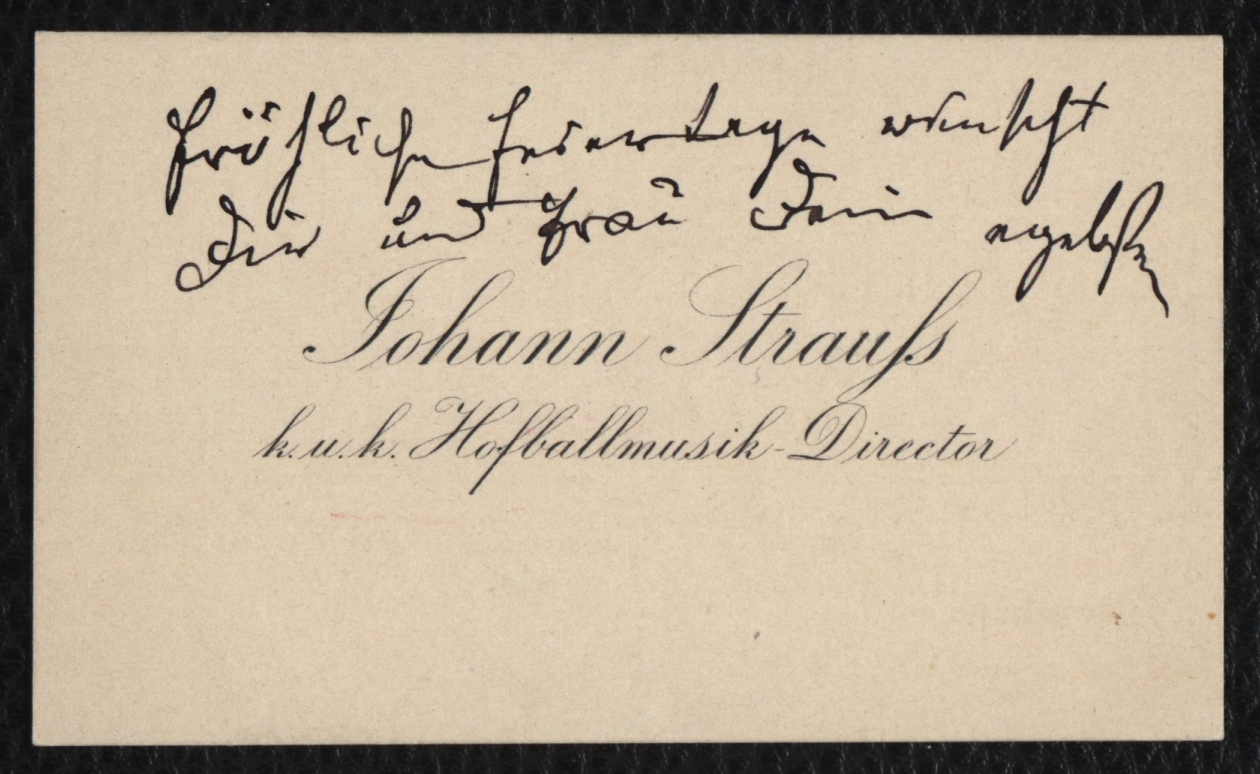 Fröhliche Feiertage wünscht
Dir und Frau Dein ergebster
Johann Strauss
k. u. k. Hofballmusik-Director